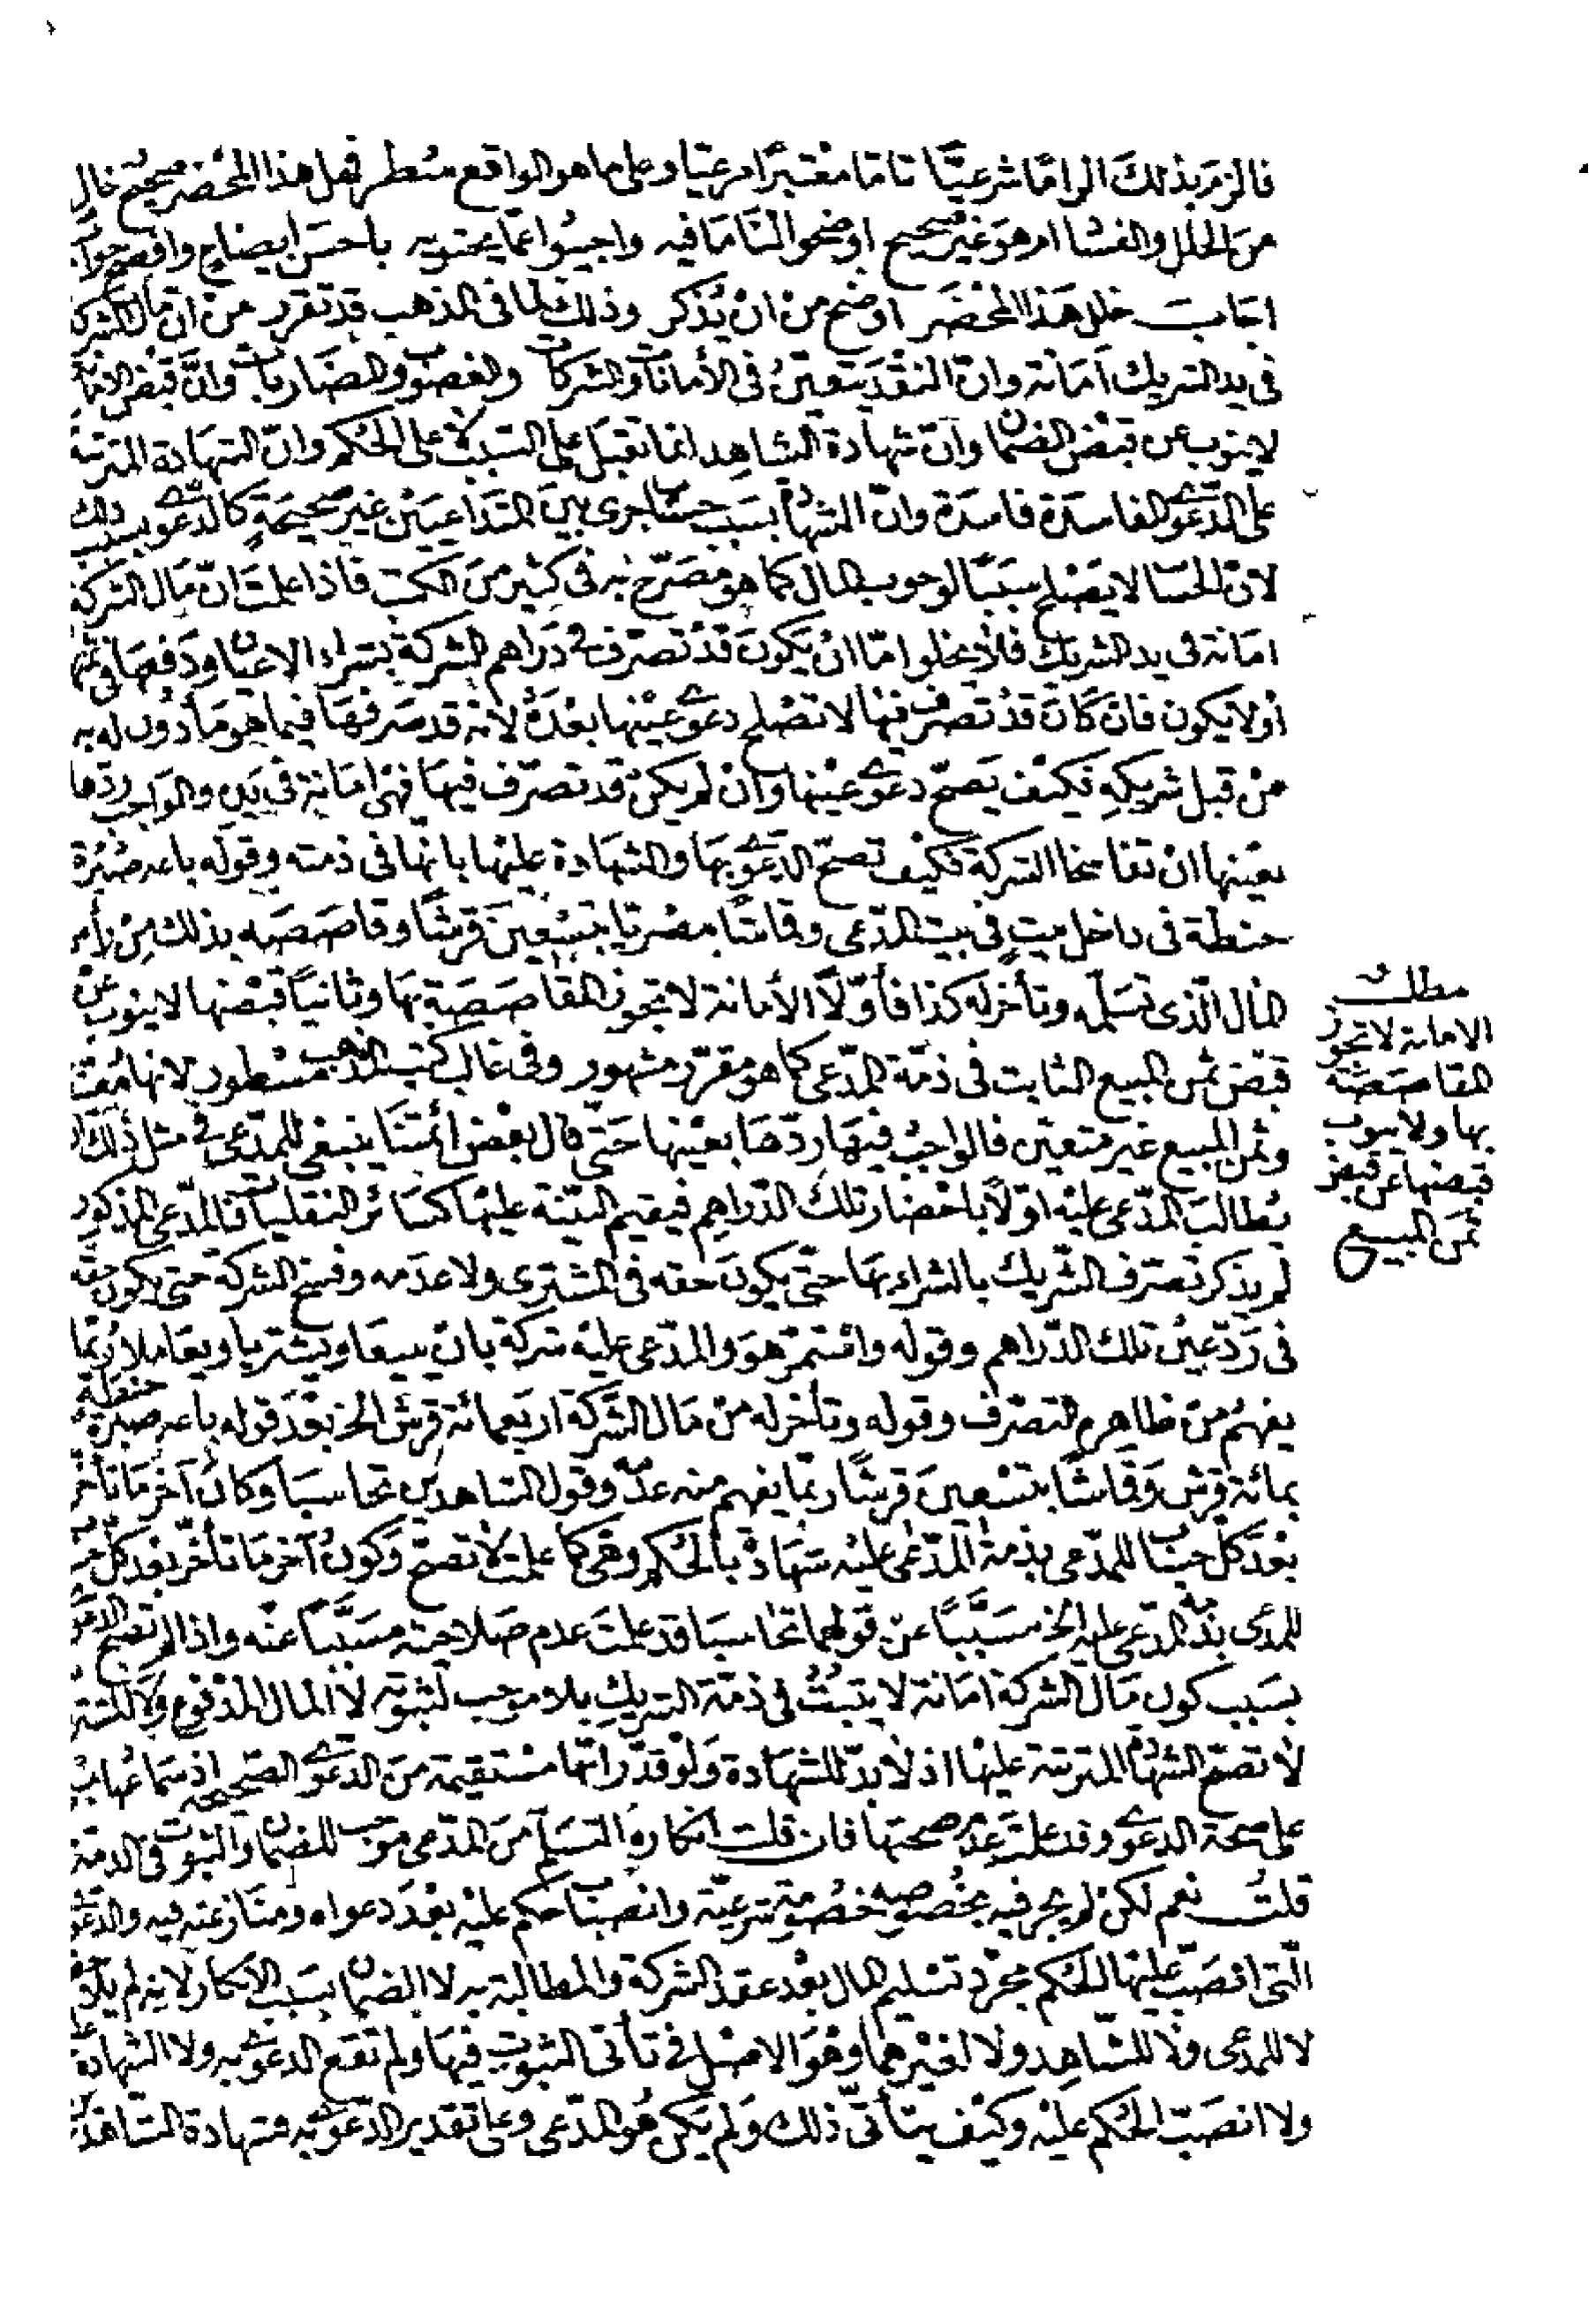 فالزم بذلك الزامًا شرعيًّا تامّا معتبرًا مرعيّا وعلى ما هو الواقع سُطر فهل هذا المحضر صحيح خالٍ
من الخلل والفساد ام هو غير صحيح اوضحوا لنا ما فيه واجيبُوا عمّا يحتويه باحسن ايضاح وافصح جواب
اجاب خلل هذا المحضر اوضح من ان يُذكر وذلك لما فى المذهب قد تقرر من انّ مال الشركة
فى يد الشريك امانة وانّ النقد يتعيّن فى الأمانات والشركات والغصوب والمضاربات وانّ قبض الأمانة
لا ينوب عن قبض الضمان وانّ شهادة الشاهد انما تقبل على السّبب لا على الحكم وانّ الشهادة المترتبة
على الدّعوى الفاسدة فاسدة وانّ الشهادة بسبب حساب جرى بين المتداعيين غير صحيحة كالدعوى بسبب ذلك
لانّ الحساب لا يصلح سببًا لوجوب المال كما هو مصرّح به فى كثير من الكتب فاذا علمت انّ مال الشركة
امانة فى يد الشريك فلا يخلو امّا ان يكون قد تصرّف فى دراهم الشركة بشراء الاعيان ودفعها فى ثمنها
أو لا يكون فان كان قد تصرف فيها لا تصلح دعوى عينها بعده لانه قد صرفها فيما هو مأذون له به
من قبل شريكه فكيف يصحّ دعوى عينها وان لم يكن قد تصرّف فيها فهى امانة فى يده والواجب ردّها
بعينها ان تفاسخا الشركة فكيف تصحّ الدعوى بها والشهادة عليها بانها فى ذمته وقوله باعه صُبْرة
حنطة فى داخل بيت فى بيت المدّعى وقماشًا مصريّا بتسعين قرشًا وقاصصه بذلك من رأس
المال الّذى تسلّمه وتأخر له كذا فأوّلًا الأمانة لا تجوز المقاصصة بها وثانيًا قبضها لا ينوب عن
قبض ثمن المبيع الثابت فى ذمّة المدّعى كما هو مقرّر مشهور وفى غالب كتب المذهب مسطور لانها
وثمن المبيع غير متعيّن فالواجبُ فيها ردّها بعينها حتّى قال بعض ائمّتنا ينبغى للمدّعى فى مثل ذلك ان
يُطالب المدّعى عليه اوّلًا باحضار تلك الدّراهم فيقيم البيّنة عليها كسائر النقليات فالمدّعى المذكور
لم يذكر تصرف الشّريك بالشراء بها حتّى يكون حقه فى المشترى ولا عدمه وفسخ الشركة حتى يكون حقه
فى ردّ عين تلك الدّراهم وقوله واستمرّ هو والمدّعى عليه شركة بان يبيعا ويشتريا ويعاملا ربّما
يفهم من ظاهره التصرّف وقوله وتأخر له من مال الشّركة اربعمائة قرش الخ بعد قوله باعه صبرة حنطة
بمائة قرش وقماشًا بتسعين قرشًا ربّما يفهم منه عدمه وقول الشاهدين تحاسبا وكان آخر ما تأخر
بعد كلّ حساب للمدّعى بذمة المدّعى عليه شهادة بالحكم وهى كما علمت لا تصحّ وكون آخر ما تأخّر بعد كلّ حساب
للمدّعى بذمة المدّعى عليه الخ مسبّبًا عن قولهما تحاسبا قد علمت عدم صلاحيته مسبّبًا عنه واذا لم تصحّ الدعوى
بسبب كون مال الشركة امانة لا يثبتُ فى ذمّة الشريك بلا موجب لثبوته لا المال المدفوع ولا المشترى
لا تصحّ الشهادة المترتبة عليها اذ لا بدّ للشهادة ولو قدّر انّها مستقيمة من الدعوى الصّحيحة اذ سماعها يُبنى
على صحة الدعوى وقد علمت عدم صحتها فان قلت انكاره التسلّم من المدّعى موجب للضمان والثبوت فى الذمّة
قلت نعم لكن لم يجر فيه بخصوصه خصُومة شرعيّة وانصباب حكم عليه بعد دعواه ومنازعته فيه والدعوى
الّتى انصبّ عليها الحكم مجرّد تسليم المال بعد عقد الشركة والمطالبة به لا الضمان بسبب الانكار لانه لم يذكر
لا للمدّعى ولا للشّاهد ولا لغيرهما وهو الاصل فى تأتى الثبوت فيها ولم تقع الدعوى به ولا الشهادة عليه
ولا انصبّ الحكم عليه وكيف يتأتّى ذلك ولم يكن هو المدّعى وعلى تقدير الدّعوى به فشهادة الشاهدين
مطلب
الامانة لا تجوز
المقاصصة
بها ولا ينوب
قبضها عن قبض
ثمن المبيع